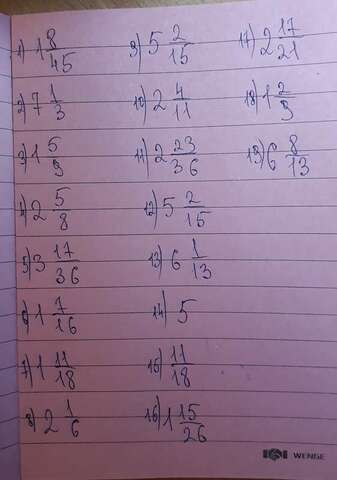 1) 1 8/45
2) 7 1/3
3) 1 5/9
4) 2 5/8
5) 3 17/36
6) 1 7/16
7) 1 11/18
8) 2 1/6
9) 5 2/15
10) 2 4/11
11) 2 23/36
12) 5 2/15
13) 6 1/13
14) 5
15) 11/18
16) 1 15/26
17) 2 17/21
18) 1 2/9
19) 6 8/13
WENGE